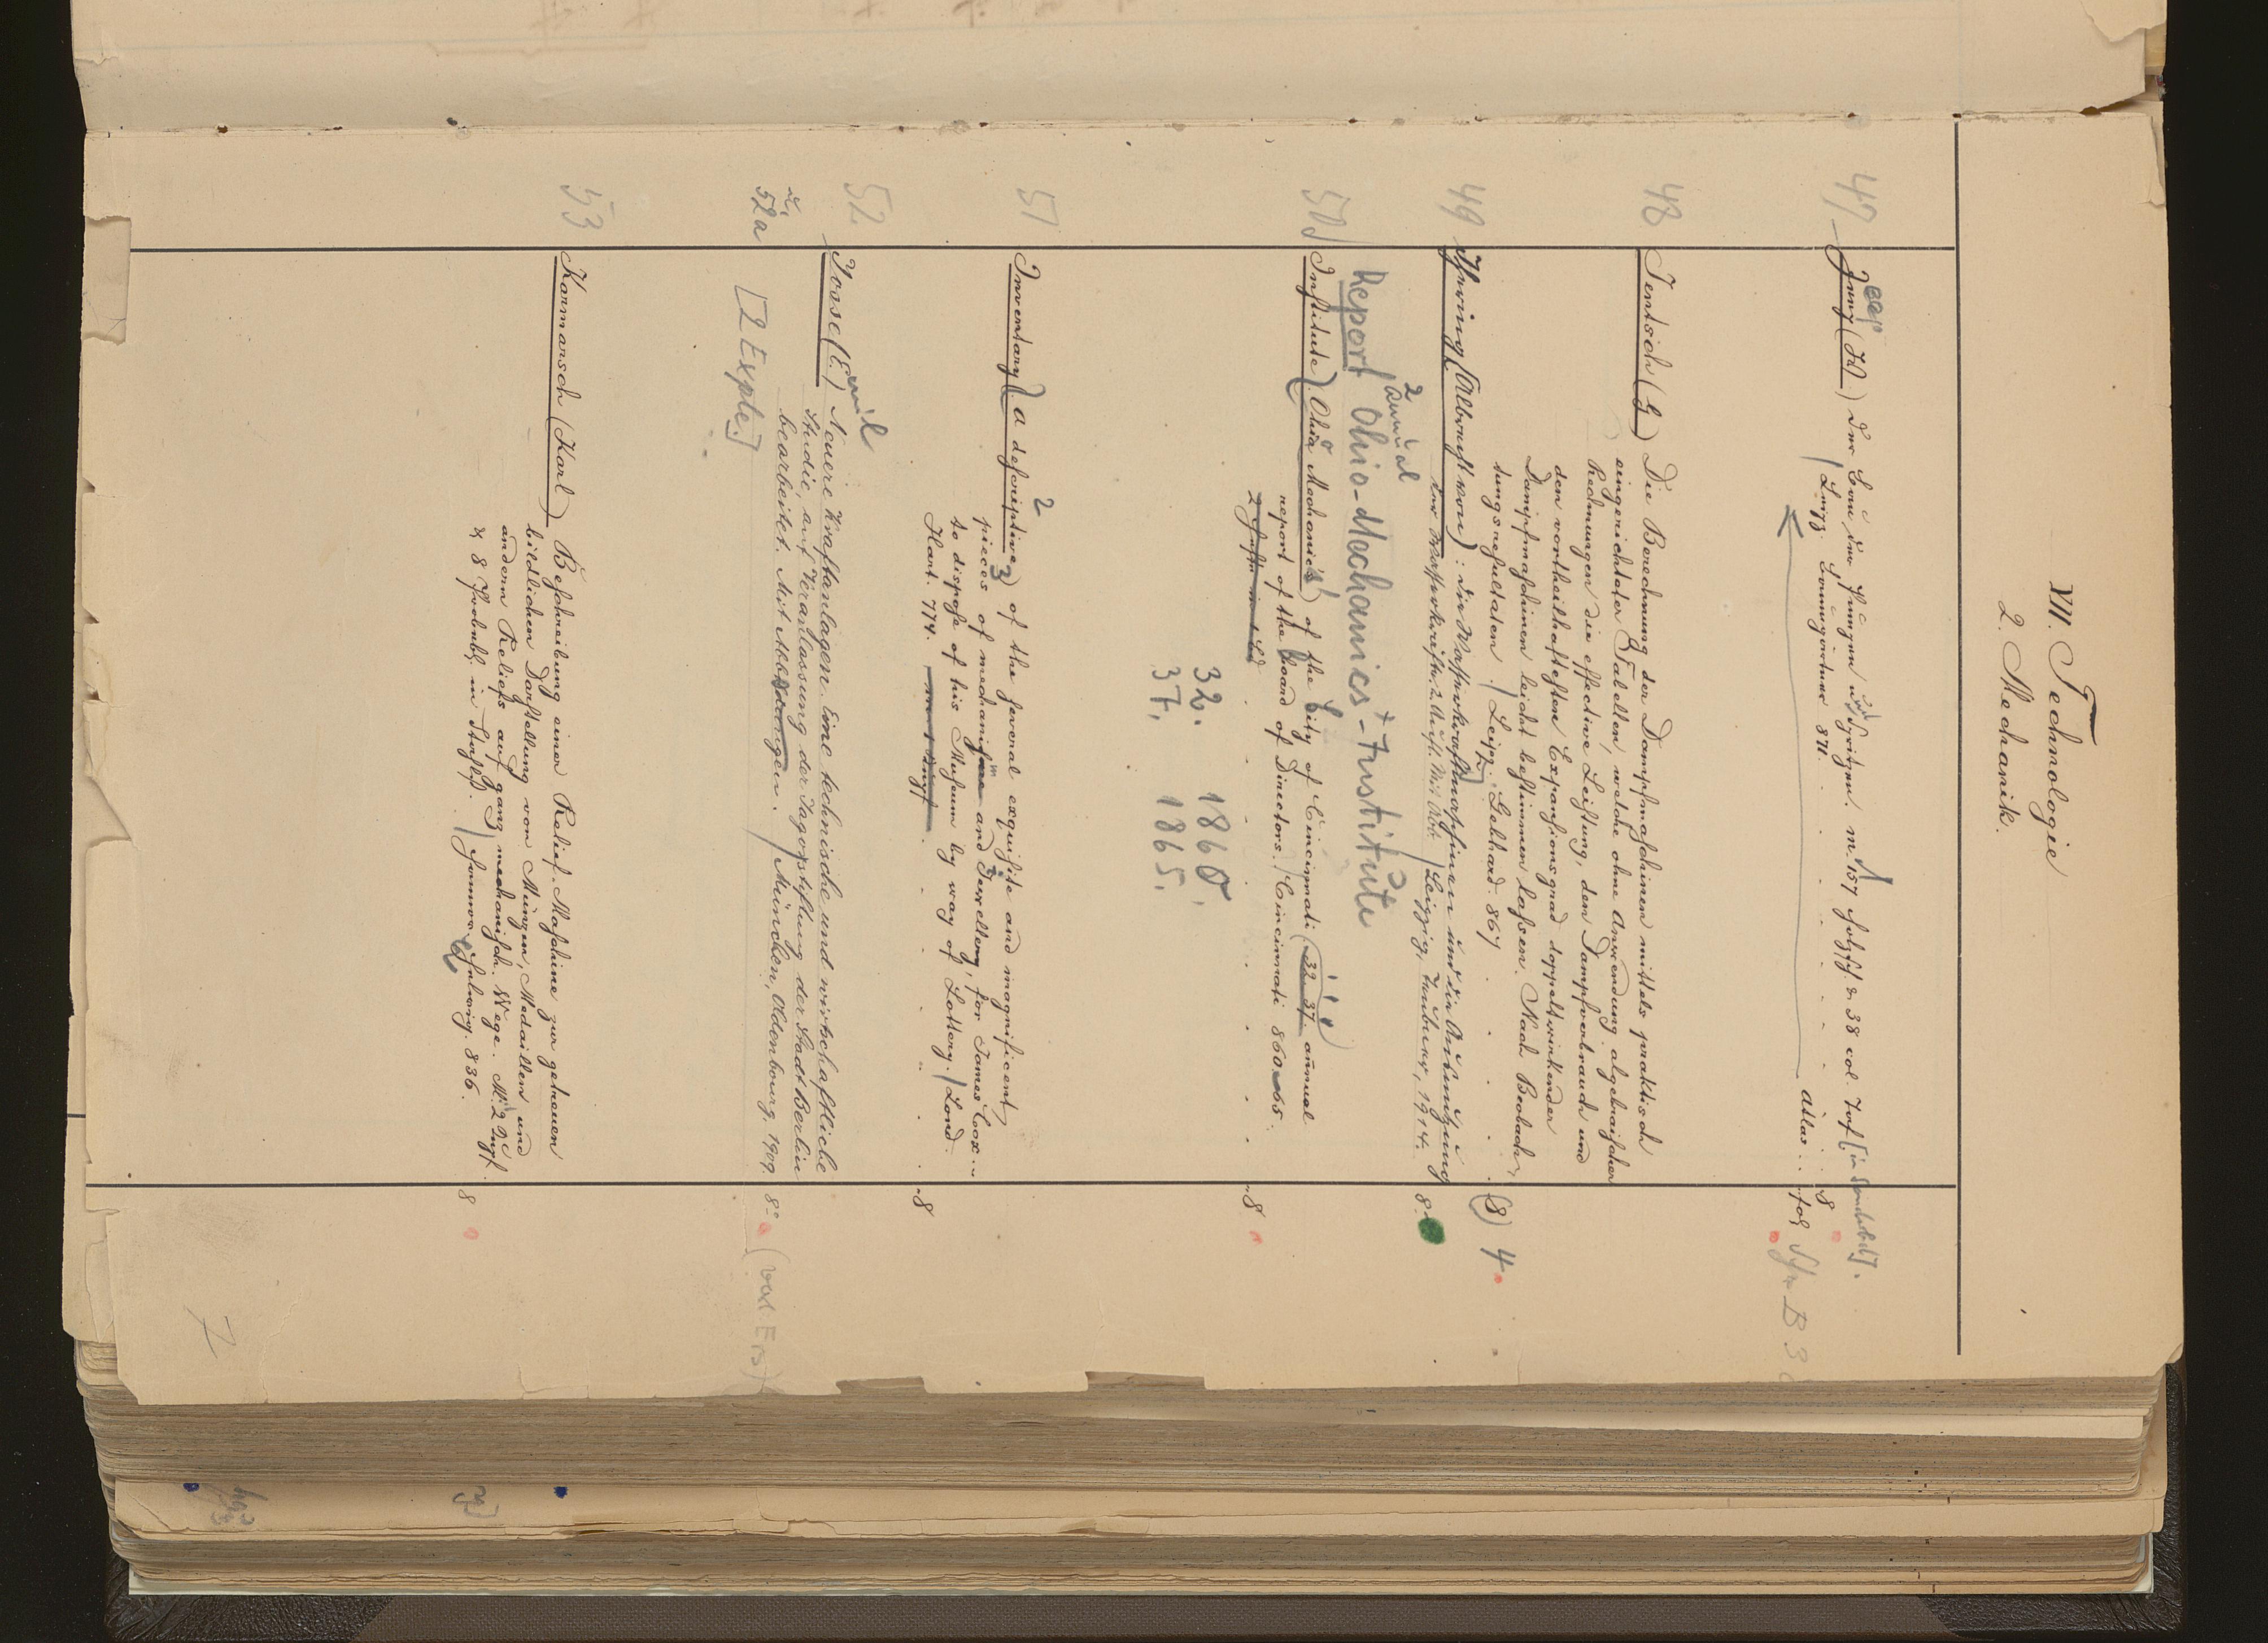 XII. Technologie
2. Mechanik.
47
Jeep (W.) Der Bau der Pumpen und Spritzen. m. 157 Holzsch. & 38 col. Taf.
/ Leipz. Baumgärtner 871. 8
Atlas fol
48
Jentsch (G) Die Berechnung der Dampfmaschinen mittels praktisch
eingerichteter Tabellen, welche ohne Anwendung algebraischer
Rechnungen die effective Leistung, den Dampfverbrauch und
den vortheilhaftesten Expansionsgrad doppeltwirkender
Dampfmaschinen leicht bestimmen lassen. Nach Beobach-
tungsresultaten. / Leipz. Gebhard. 867 (8) 4
49
Ihering (Albrecht von): die Wasserkraftmaschinen und die Ausnutzung
der Wasserkräfte. 2. Aufl. Mit Abb. / Leipzig, Teubner, 1914. 8.
2 Annual
Report Ohio-Mechanics-Institute
50
Institute (Ohio Mechanics) of the City of Cincinnati (32 37.) annual
report of the board of Directors. / Cincinnati 860-65. 8
32. 1860.
37. 1865.
51
Inventary (a descriptive) of the several exquisite and magnificent
pieces of mechanism and Jewellery, for James Cox
to dispose of his Museum by way of Lottery. / Lond.
Hart. 774. 8
52
u. 52a
Josse (Emil) Neuere Kraftanlagen. Eine technische und wirtschaftliche
Studie, auf Veranlassung der Jagorstiftung der Stadt Berlin
bearbeitet. Mit Abbildungen. / München, Oldenbourg, 1909 8°
[2 Exple.]
53
Karmarsch (Karl) Beschreibung einer Relief-Maschine zur getreuen
bildlichen Darstellung von Münzen, Medaillen und
andern Reliefs auf ganz mechanisch. Wege. M. 2
& 8 Probebl. in Stahlst. / Hannov. Helwing. 836. 8
7